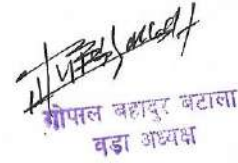 गोपाल बहादुर बटाला
वडा अध्यक्ष